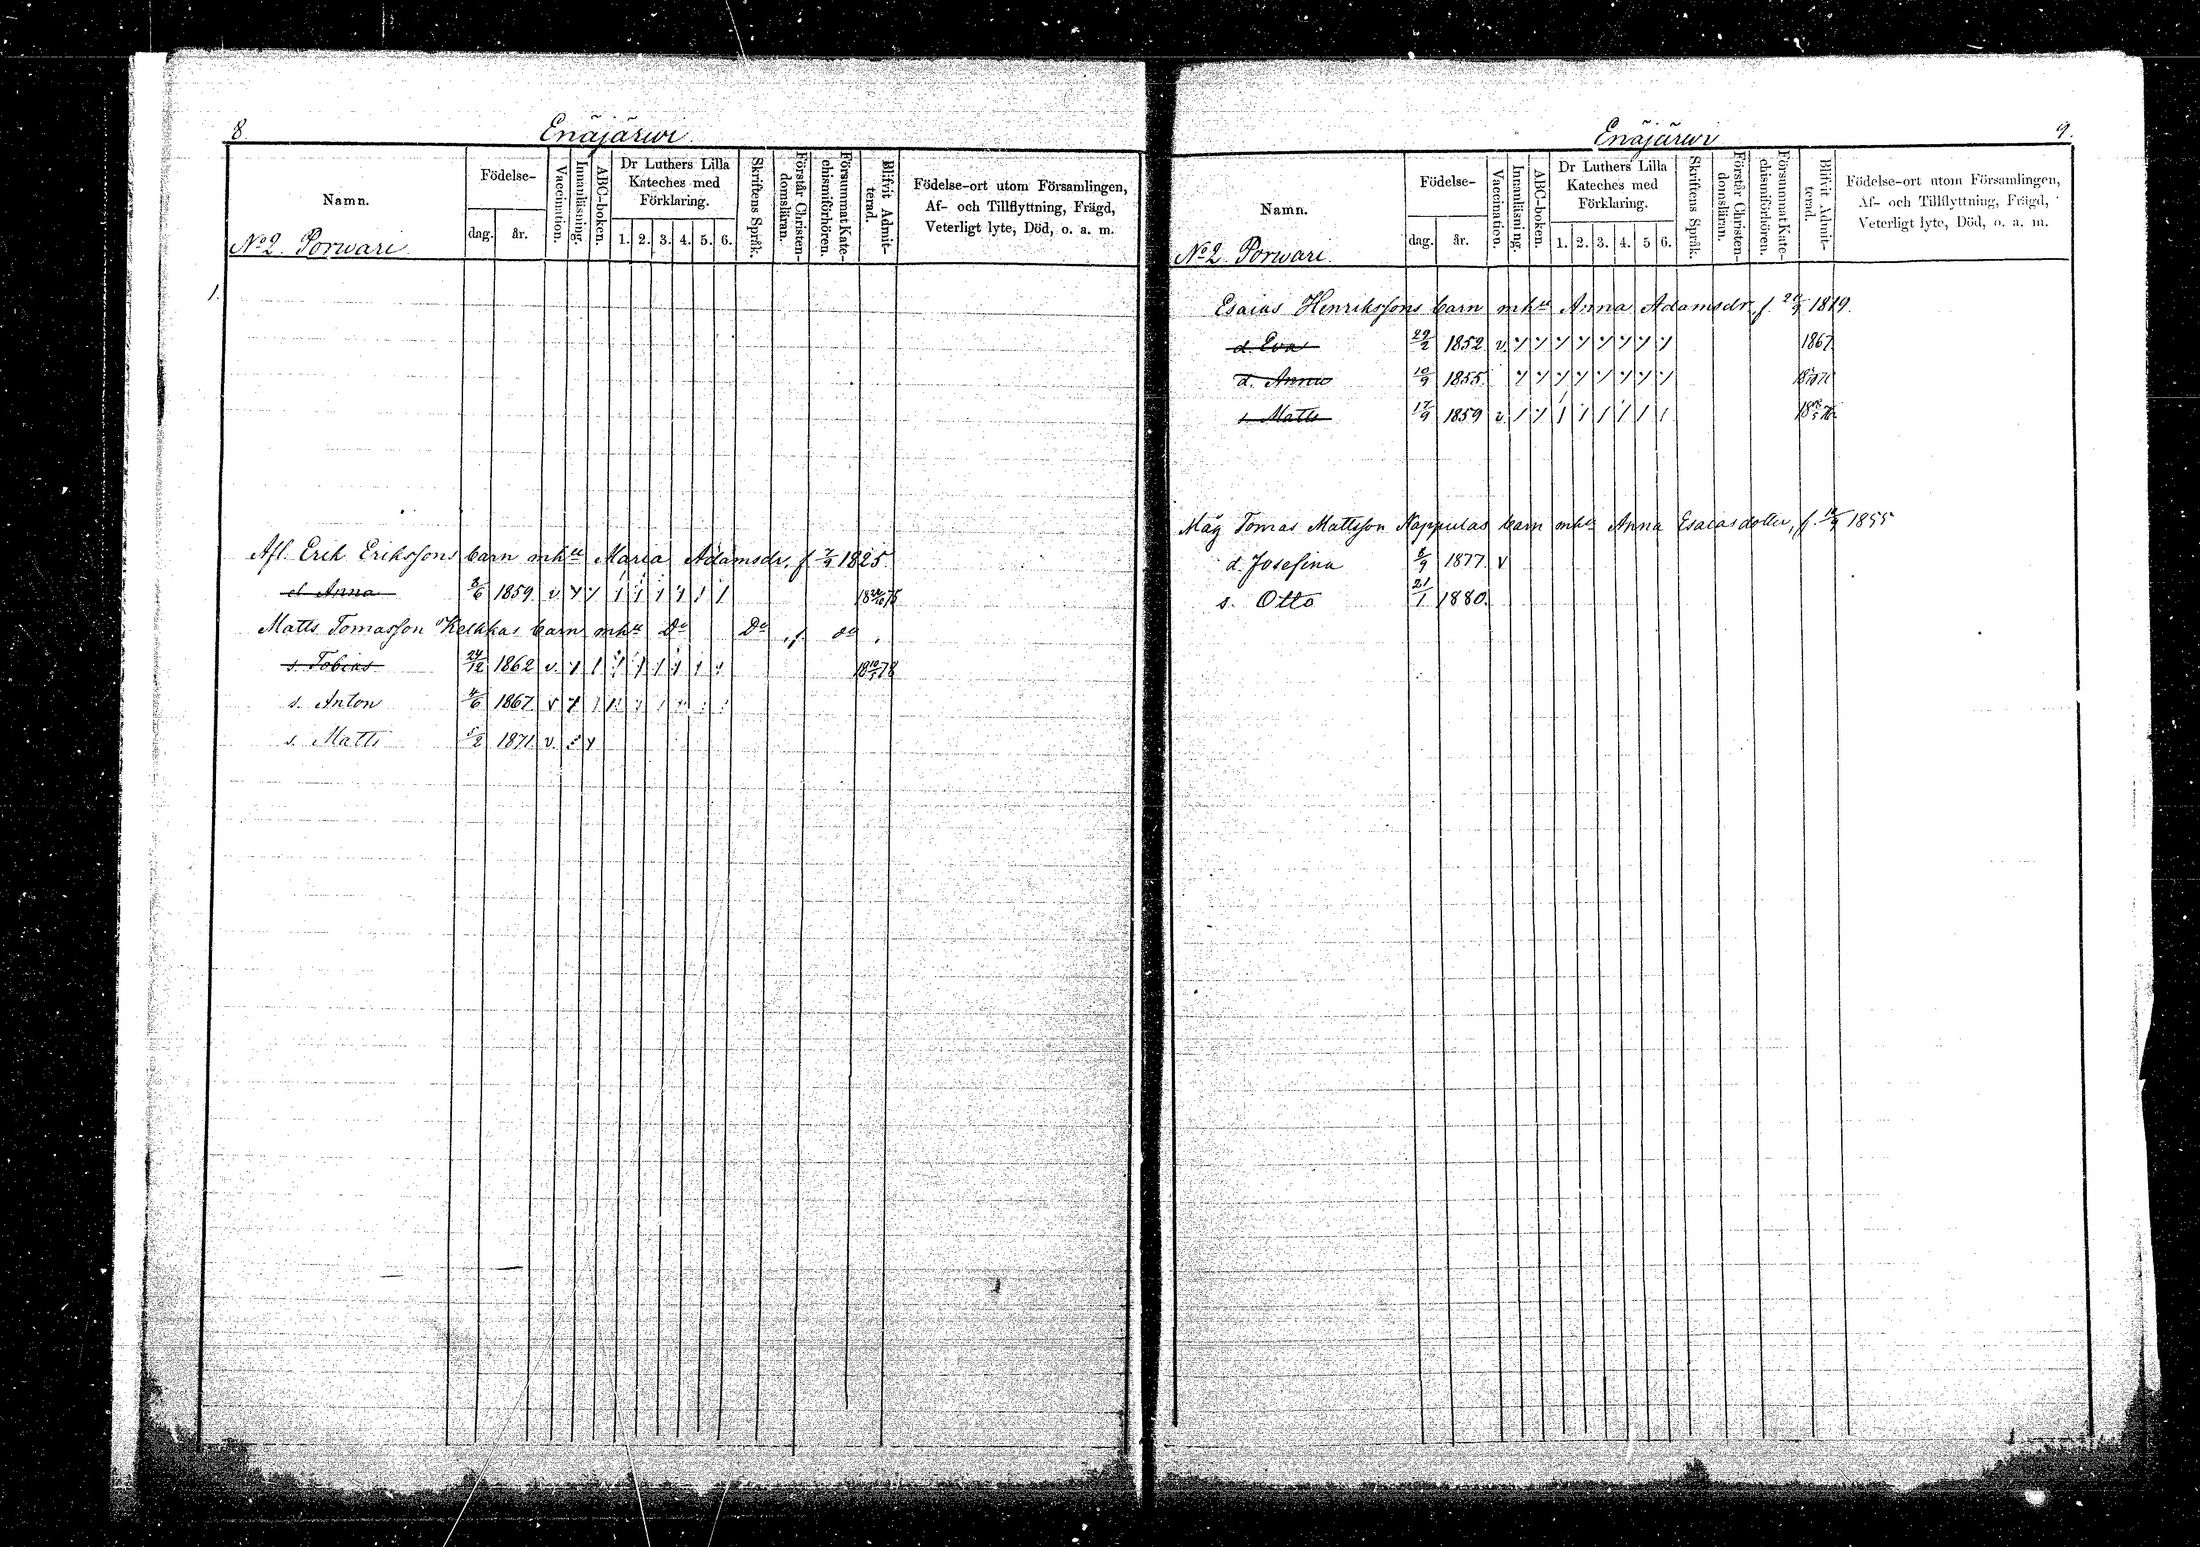 8.
Enäjärwi
Namn.
Födelse-
dag.
år.
Vaccination.
Innanläsning.
ABC-boken.
Dr Luthers Lilla
Kateches med
Förklaring.
1. 2. 3. 4. 5. 6.
Skriftens Språk.
Förstår Christen-
domsläran.
Försummat Kate-
chismiförhören.
Blifvit Admit-
terad.
Födelse-ort utom Församlingen,
Af- och Tillflyttning, Frägd,
Veterligt lyte, Död, o. a. m.
No 2. Porwari
1.
Afl. Erik Erikssons barn mhu Maria Adamsdr, f. 7/9 1825.
d. Anna 8/6 1859. v
Matts Tomasson Kelkkas barn mhu Do Do, f. do,
s. Tobias 24/12 1862 v.
s. Anton 4/6 1867. v
s. Matts 5/2 1871. v.
Enäjärwi
9.
Namn.
Födelse-
dag.
år.
Vaccination.
Innanläsning.
ABC-boken.
Dr Luthers Lilla
Kateches med
Förklaring.
1. 2. 3. 4. 5 6.
Skriftens Språk.
Förstår Christen-
domsläran.
Försummat Kate-
chismiförhören.
Blifvit Admit-
terad.
Födelse-ort utom Församlingen,
Af- och Tillflyttning, Frägd,
Veterligt lyte, Död, o. a. m.
No 2. Porwari
Esaias Henrikssons barn mhu Anna Adamsdr, f. 1819.
d. Eva 29/2 1852 v. 1867.
d. Anna 10/9 1855.
s. Matts 17/9 1859 v.
Måg Tomas Mattsson Nappulas barn mhu Anna Esaiasdotter, f. 10/9 1855
d. Josefina 8/9 1877. v
s. Otto 21/1 1880.